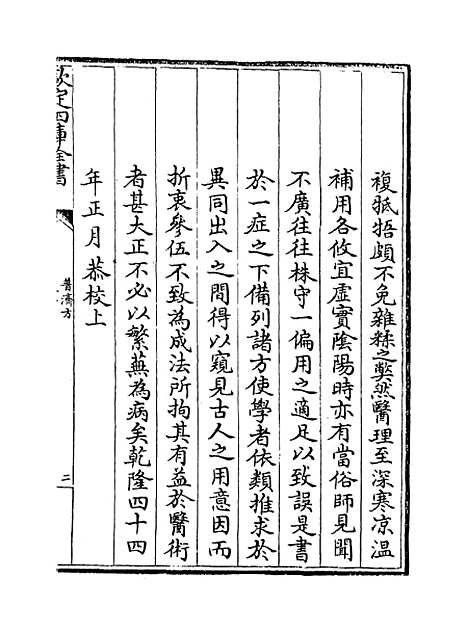 複牴牾頗不免雜糅之弊然醫理至深寒凉温
補用各攸宜虛實陰陽時亦有當俗師見聞
不廣往往株守一偏用之適足以致誤是書
於一症之下備列諸方使學者依類推求於
異同出入之間得以窺見古人之用意因而
折衷參伍不致為成法所拘其有益於醫術
者甚大正不必以繁蕪為病矣乾隆四十四
年正月恭校上
欽定四庫全書
普濟方
二